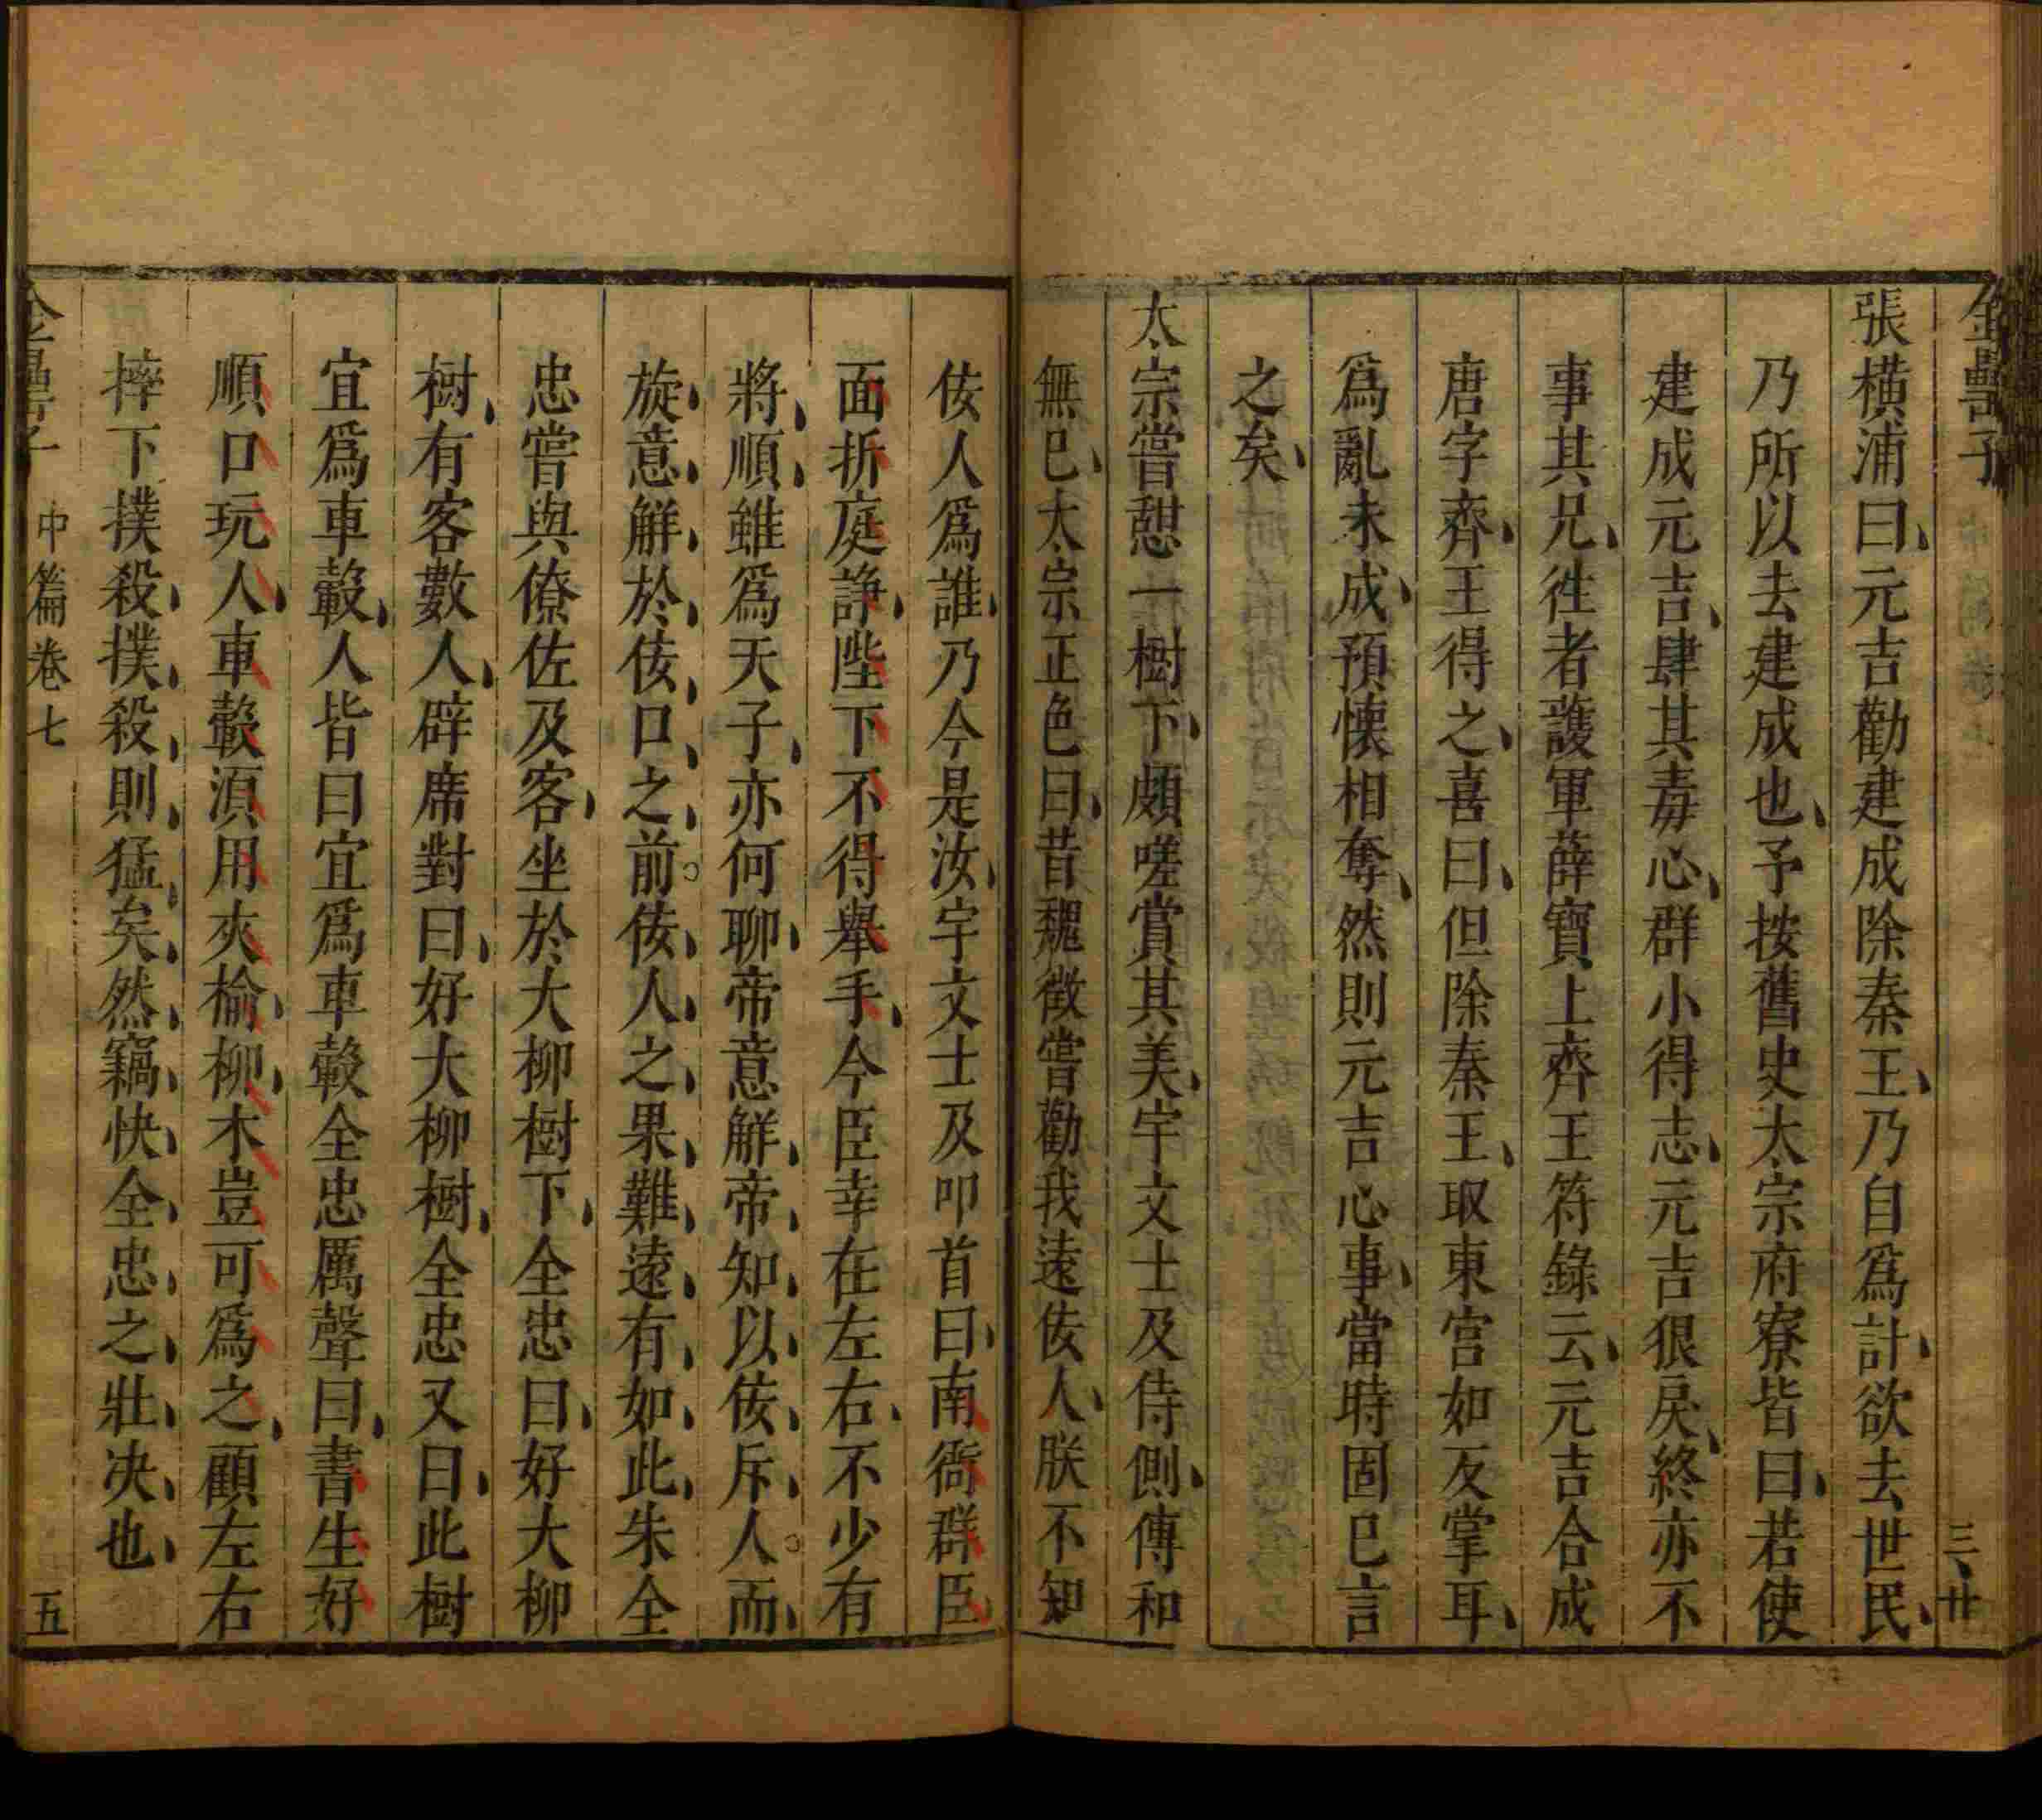 金罍子
三、廿
張橫浦曰、元吉勸建成除秦王、乃自爲計、欲去世民、
乃所以去建成也、予按舊史太宗府寮皆曰、若使
建成元吉、肆其毒心、群小得志、元吉狠戾、終亦不
事其兄、徃者護軍薛寶上齊王符籙云、元吉合成
唐字齊、王得之、喜曰、但除秦王、取東宮如反掌耳、
爲亂未成、預懷相奪、然則元吉心事、當時固已言
之矣、
太宗嘗憇一樹下、頗嗟賞其美、宇文士及侍側、傳和
無已、太宗正色曰、昔魏徵嘗勸我遠佞人、朕不知
佞人爲誰、乃今是汝、宇文士及叩首曰、南衙群臣、
面折庭諍、陛下不得舉手、今臣幸在左右、不少有
將、順、雖爲天子、亦何聊、帝意解、帝、知、以、佞、斥、人。而、
旋、意、解、於、佞、口、之、前。佞、人、之、果、難、遠、有、如、此、朱全
忠嘗與僚佐及客、坐於大柳樹下、全忠曰、好大柳
樹、有客數人、辟席對曰、好大柳樹、全忠又曰、此樹
宜爲車轂、人皆曰宜爲車轂全忠厲聲曰、書生好
順口玩人、車轂湏用夾榆、柳、木豈可爲之、顧左右
摔下撲殺、撲、殺、則、猛、矣、然、竊、快、全、忠、之、壯、决、也、
金罍子
中篇卷七
五